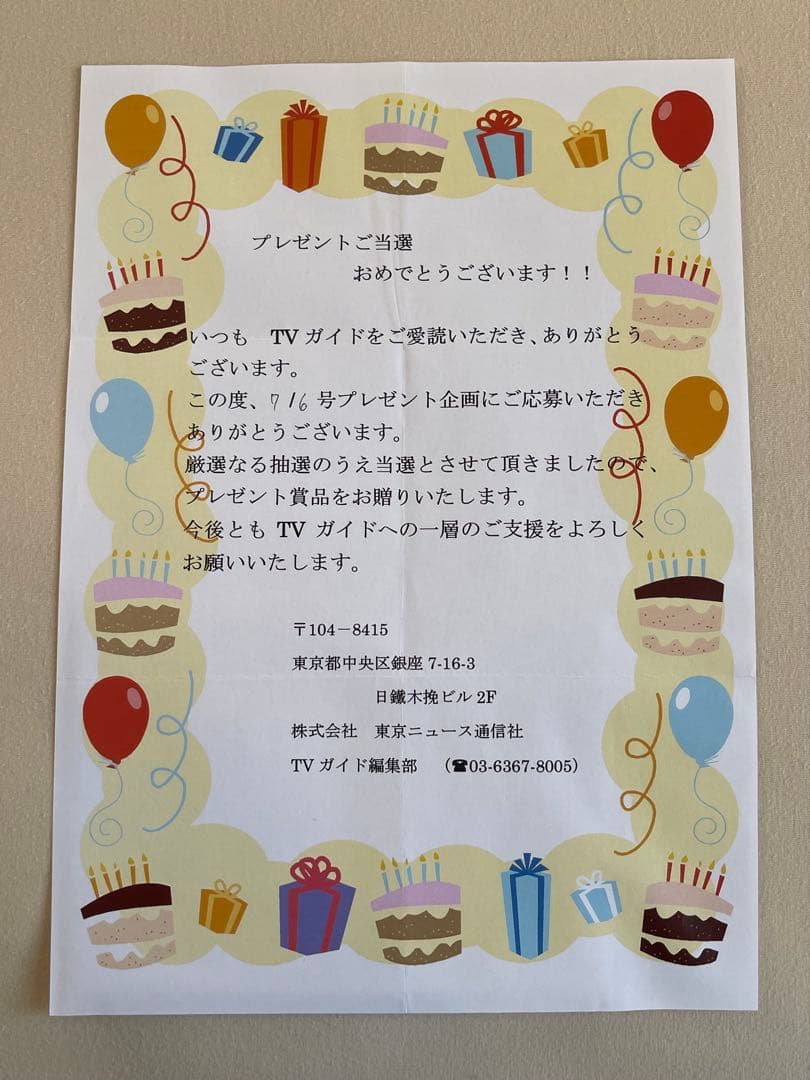 プレゼントご当選
おめでとうございます！！
いつも　TVガイドをご愛読いただき、ありがとう
ございます。
この度、7/6号プレゼント企画にご応募いただき
ありがとうございます。
厳選なる抽選のうえ当選とさせて頂きましたので、
プレゼント賞品をお贈りいたします。
今後とも TV ガイドへの一層のご支援をよろしく
お願いいたします。
〒104－8415
東京都中央区銀座 7-16-3
日鐵木挽ビル 2F
株式会社　東京ニュース通信社
TV ガイド編集部　（☎03-6367-8005）